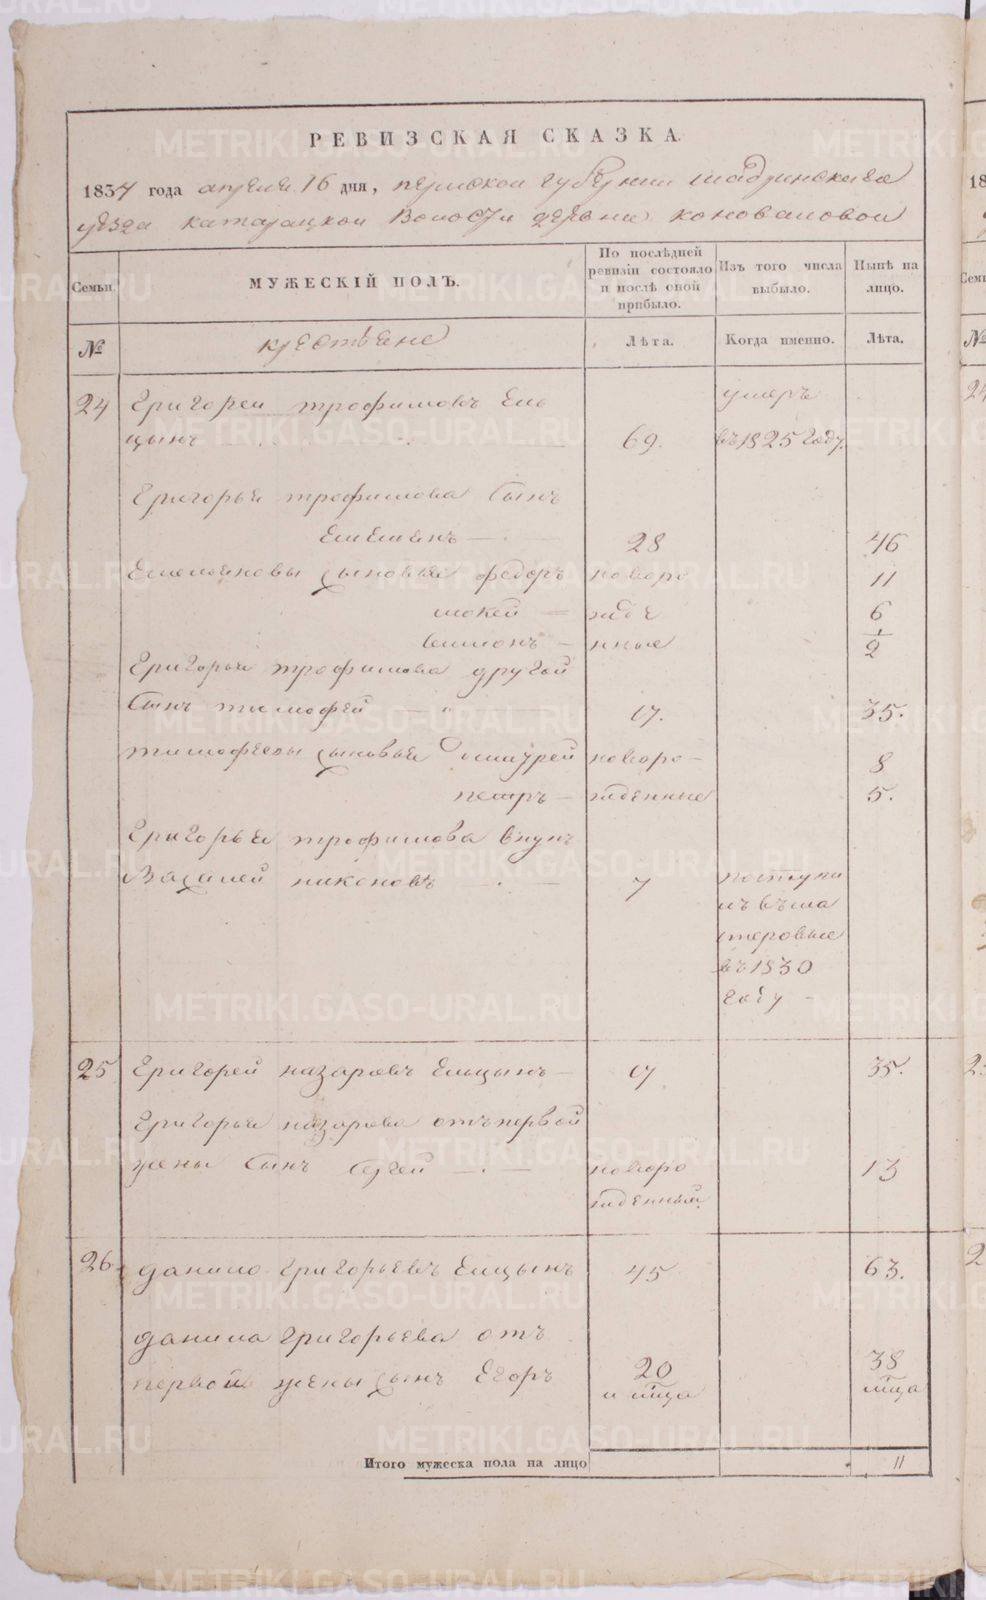 РЕВИЗСКАЯ СКАЗКА.
1834 года апреля 16 дня, пермской губернии шадринскаго
уезда катайцкой волости деревни коноваловой
Семьи.
МУЖЕСКІЙ ПОЛЪ.
По послѣдней ревизіи состояло и послѣ оной прибыло.
Изъ того числа выбыло.
Нынѣ на лицо.
№
крестьяне
Лѣта.
Когда именно.
Лѣта.
24 Григорей трофимовъ Ель умеръ
цынъ 69. въ 1825 году.
Григорья трофимова сынъ
Емельянъ 28 46
Емельяновы сыновья федоръ новоро 11
мокей жде 6
нные 1/2
Григорья трофимова другой
сынъ тимофей 17. 35.
тимофеевы сыновья новоро 8
петръ жденные 5.
Григорья трофимова внукъ
Васалей никоновъ 7 поступи
лъ въ ма
стеровые
въ 1830
году
25 Григорей назаровъ Ельцынъ 17 35.
Григорья назарова отъ первой
жены сынъ сергей новоро 13
жденный
26 данило григорьевъ Елцынъ 45 63.
данила григорьева отъ
первой жены сынъ Егоръ 20 38
Итого мужеска пола на лицо 11
METRIKI.GASO-URAL.RU